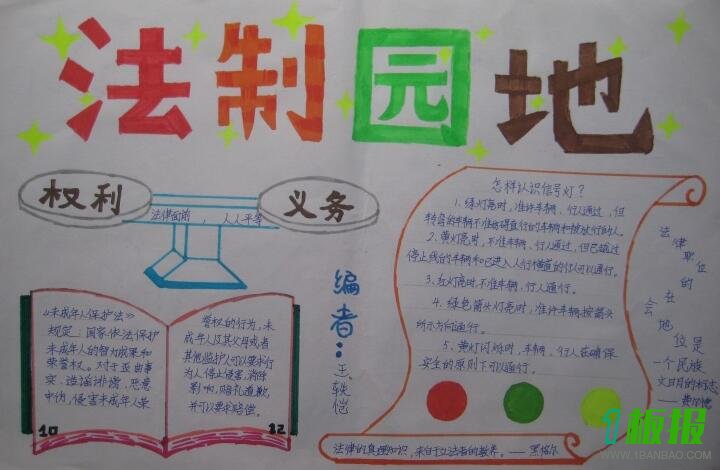 法制园地
权利
义务
法律面前，人人平等
《未成年人保护法》
规定：国家依法保护
未成年人的智力成果和
荣誉权。对于歪曲事
实、造谣诽谤、恶意
中伤，侵害未成年人荣
10
誉权的行为，未
成年人及其父母或者
其他监护人可以要求行
为人停止侵害，消除
影响，赔礼道歉，
并可以要求赔偿。
12
编者：王轶恺
怎样认识信号灯？
1、绿灯亮时，准许车辆、行人通过，但
转弯的车辆不准妨碍直行的车辆和被放行的行人。
2、黄灯亮时，不准车辆、行人通过，但已越过
停止线的车辆和已进入人行横道的行人可以通行。
3、红灯亮时，不准车辆、行人通行。
4、绿色箭头灯亮时，准许车辆按箭头
所示方向通行。
5、黄灯闪烁时，车辆、行人在确保
安全的原则下可以通行。
法律的真理知识，来自于立法者的教养。——黑格尔
法律职位
的
在
会
地
位是
一个民族
文明的标志
1板报
WWW.1BANBAO.COM